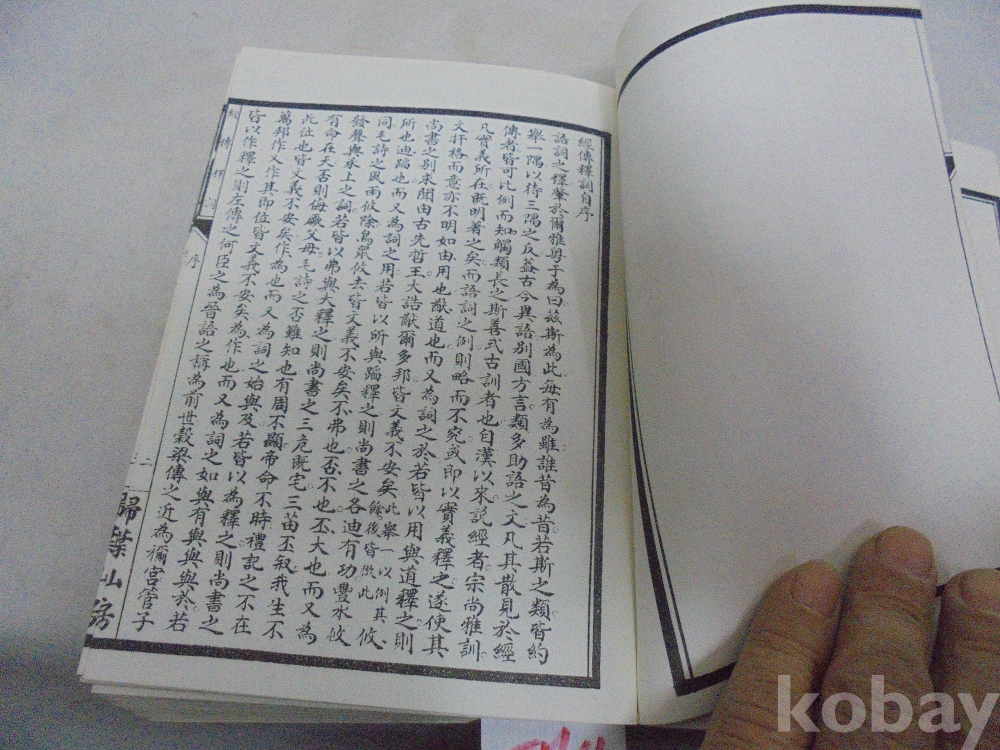 經傳釋詞自序
語詞之釋肇於爾雅粤于為曰玆斯為此每有為雖誰昔為昔若斯之類皆約
舉一隅以待三隅之反葢古今異語別國方言類多助語之文凡其散見於經
傳者皆可比例而知觸類長之斯善式古訓者也自漢以來説經者宗尚雅訓
凡實義所在既明著之矣而語詞之例則略而不究或即以實義釋之遂使其
文扞格而意亦不明如由用也猷道也而又為詞之於若皆以用與道釋之則
尚書之別求聞由古先哲王大誥猷爾多邦皆文義不安矣此舉一以例其餘後皆倣此攸
所也迪蹈也而又為詞之用若皆以所與蹈釋之則尚書之各迪有功豐水攸
同毛詩之風雨攸除鳥鼠攸去皆文義不安矣不弗也否不也丕大也而又為
發聲與承上之詞若皆以弗與大釋之則尚書之三危既宅三苗丕敘我生不
有命在天否則侮厥父母毛詩之否難知也有周不顯帝命不時禮記之不在
此位也皆文義不安矣作為也而又為詞之始與及若皆以為釋之則尚書之
萬邦作乂作其即位皆文義不安矣為作也而又為詞之如與有與與與於若
皆以作釋之則左傳之何臣之為晉語之稱為前世穀梁傳之近為禰宮管子
經傳釋
序
二
歸葉山房
kobay